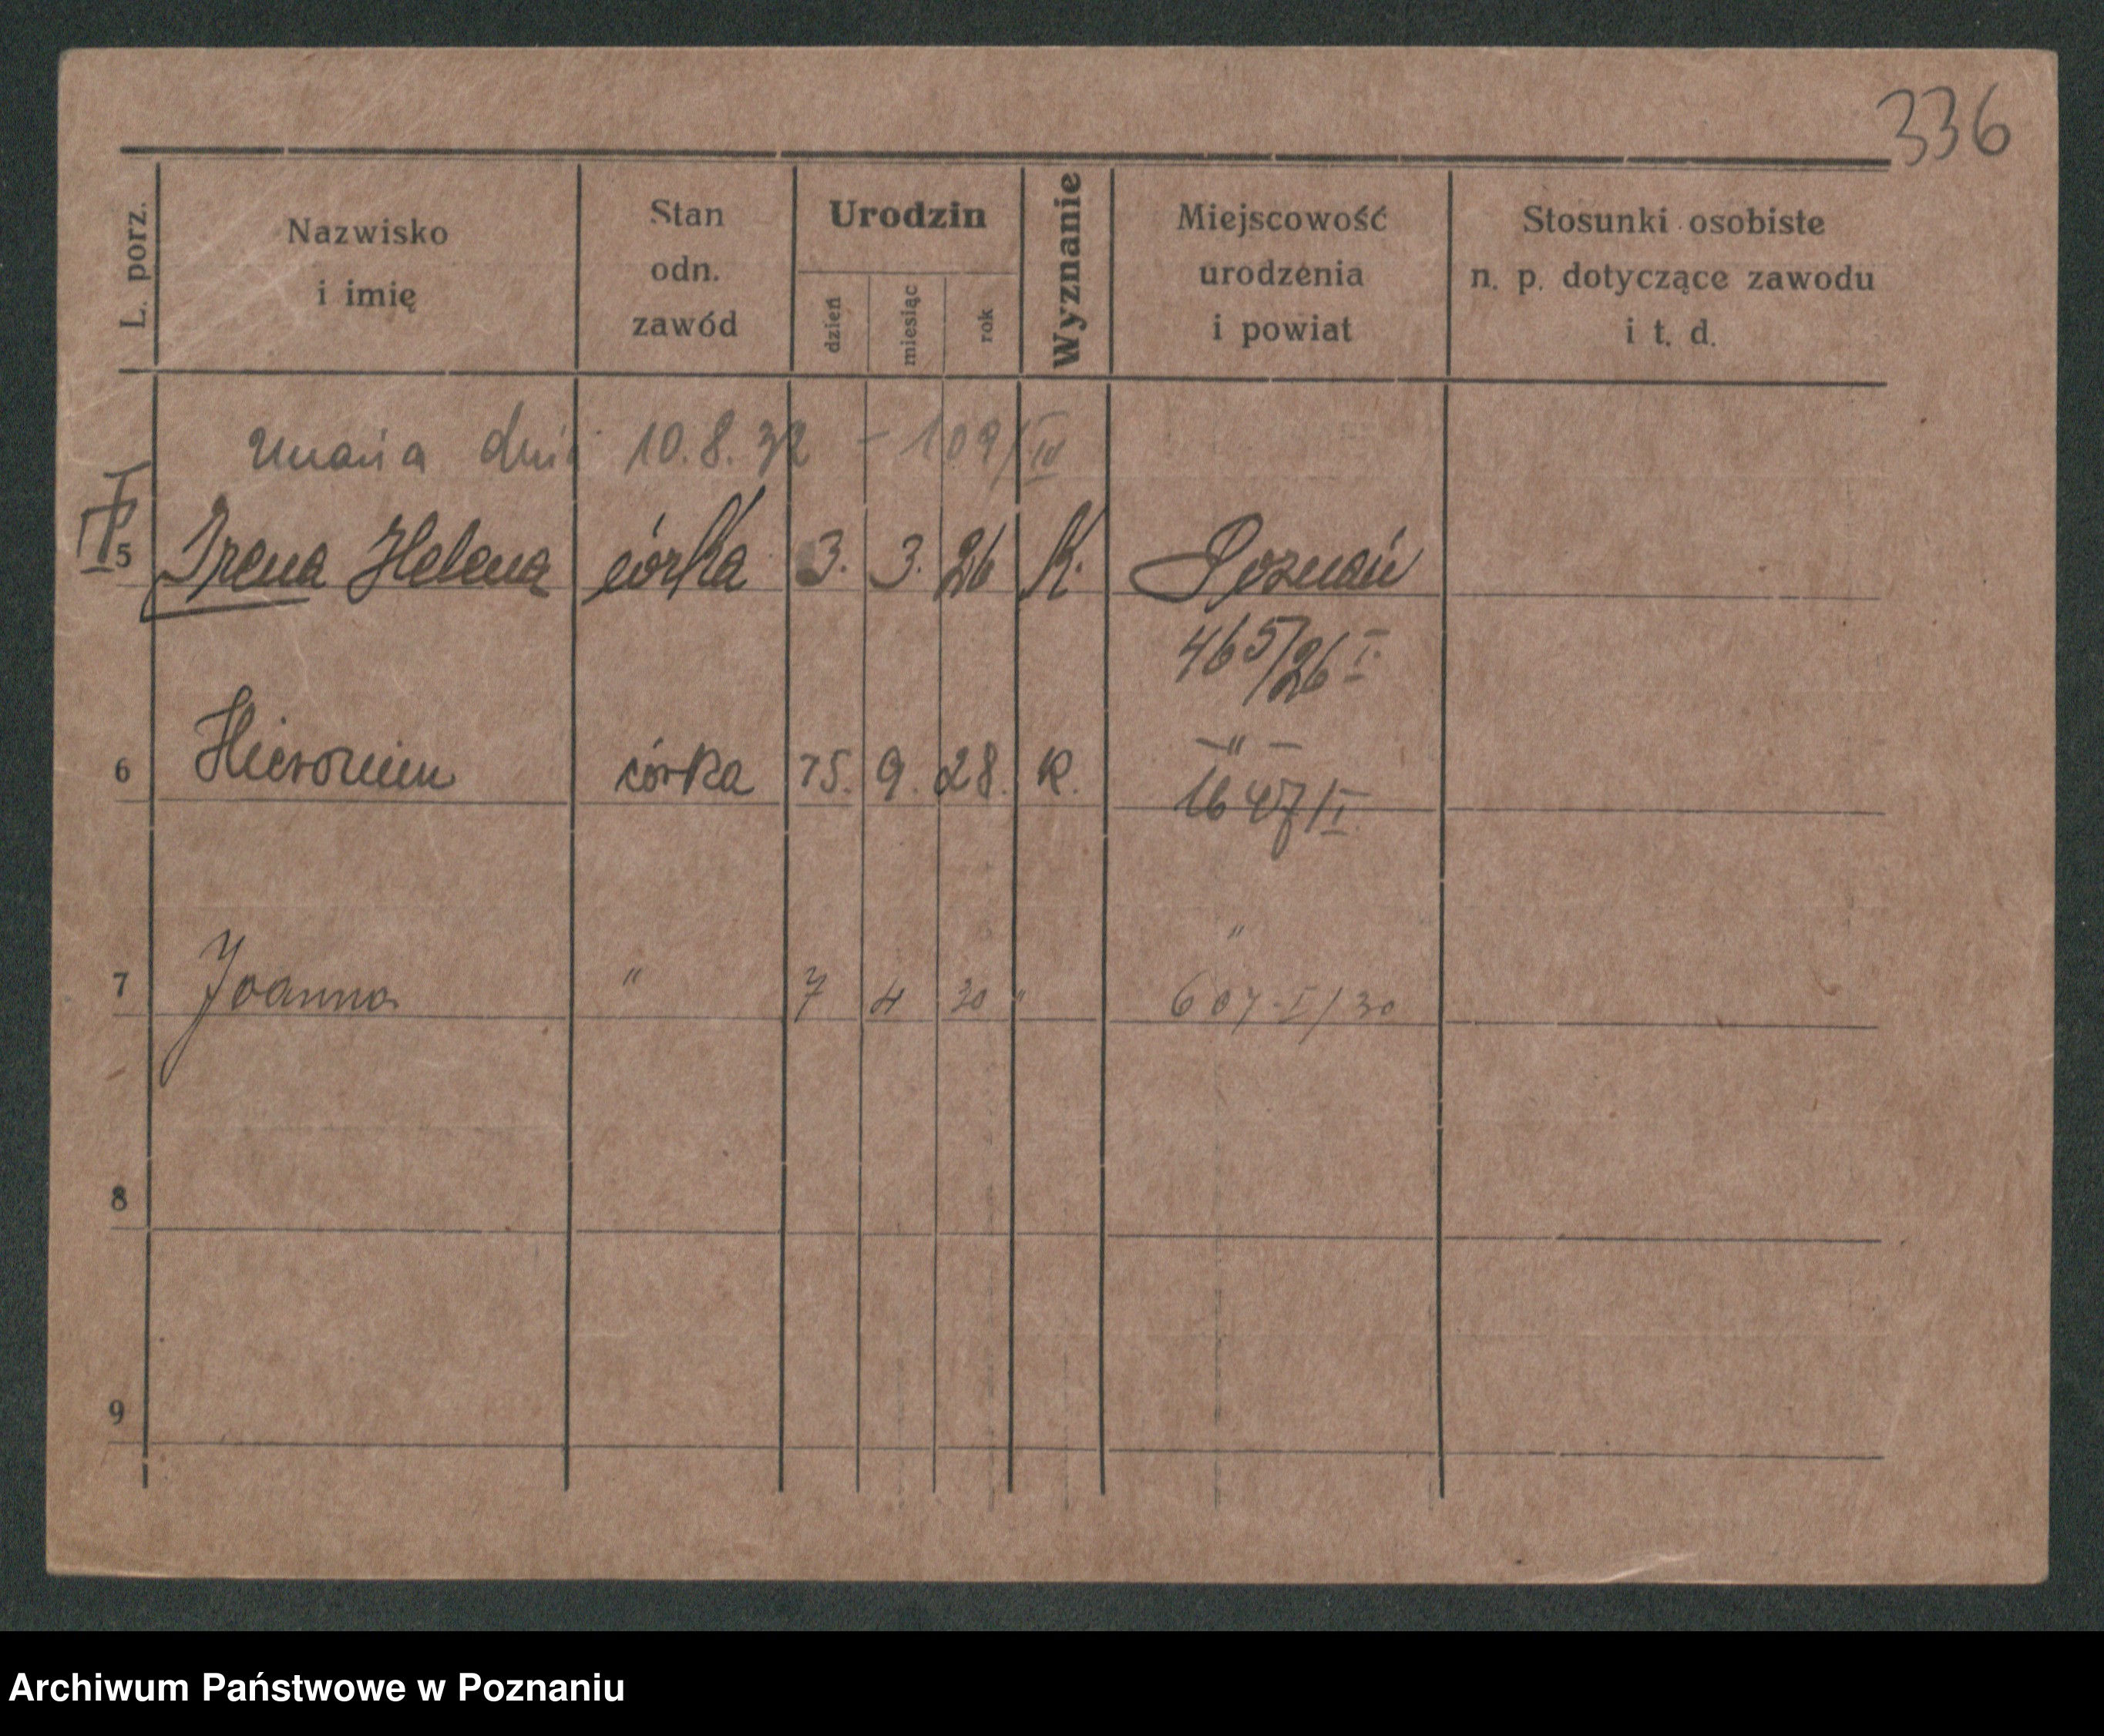 336
L. porz.
Nazwisko
i imię
Stan
odn.
zawód
Urodzin
dzień
miesiąc
rok
Wyznanie
Miejscowość
urodzenia
i powiat
Stosunki osobiste
n. p. dotyczące zawodu
i t. d.
zmarła dnia 10.8.32 – 109/IV
5 Irena Helena córka 3. 3. 26 K. Poznań
465/26 I.
6 Hieronim córka 15. 9. 28. K. –"–
1647/I
7 Joanna " 7 4 30 " "
607-I/30
8
9
Archiwum Państwowe w Poznaniu